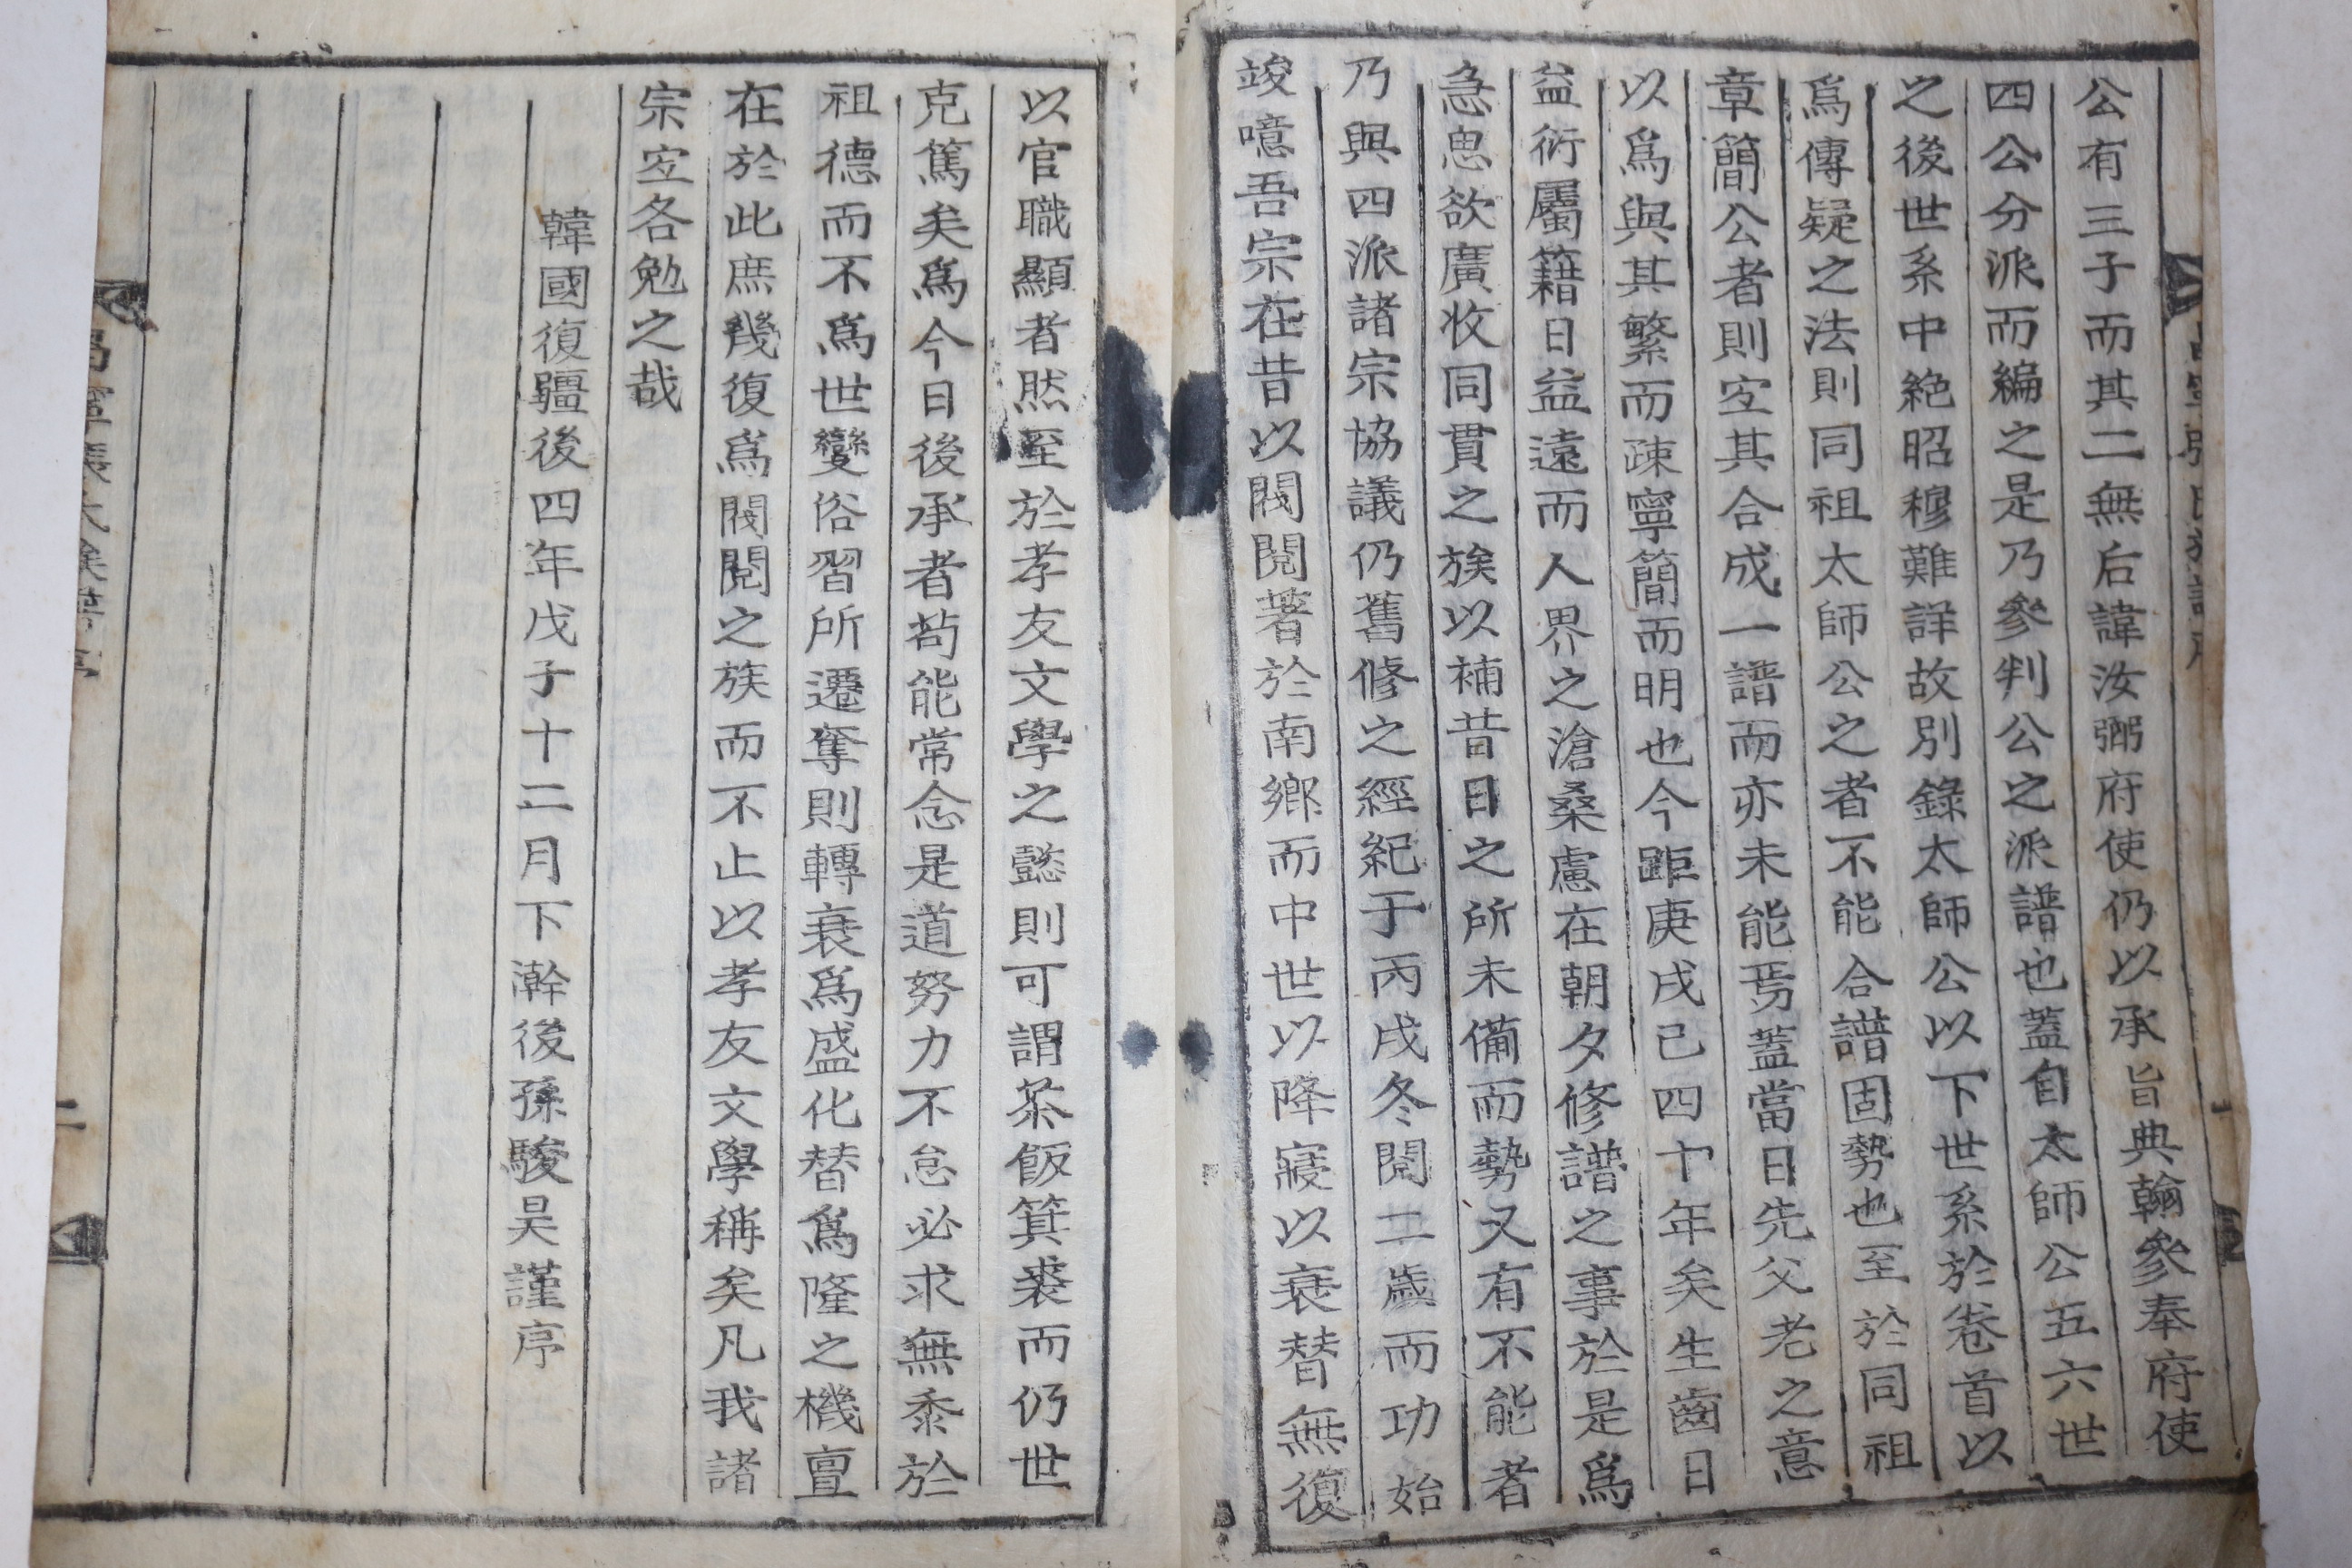 公有三子而其二無后諱汝弼府使仍以承旨典翰參奉府使
四公分派而編之是乃參判公之派譜也蓋自太師公五六世
之後世系中絶昭穆難詳故別錄太師公以下世系於卷首以
爲傳疑之法則同祖太師公之者不能合譜固勢也至於同祖
章簡公者則宐其合成一譜而亦未能焉蓋當日先父老之意
以爲與其繁而疎寧簡而明也今距庚戌已四十年矣生齒日
益衍屬籍日益遠而人界之滄桑慮在朝夕修譜之事於是爲
急思欲廣收同貫之族以補昔日之所未備而勢又有不能者
乃與四派諸宗協議仍舊修之經紀于丙戌冬閱二歲而功始
竣噫吾宗在昔以閥閱著於南鄉而中世以降寢以衰替無復
以官職顯者然至於孝友文學之懿則可謂茶飯箕裘而仍世
克篤矣爲今日後承者苟能常念是道努力不怠必求無忝於
祖德而不爲世變俗習所遷奪則轉衰爲盛化替爲隆之機亶
在於此庶幾復爲閥閱之族而不止以孝友文學稱矣凡我諸
宗宐各勉之哉
韓國復疆後四年戊子十二月下澣後孫駿昊謹序
二